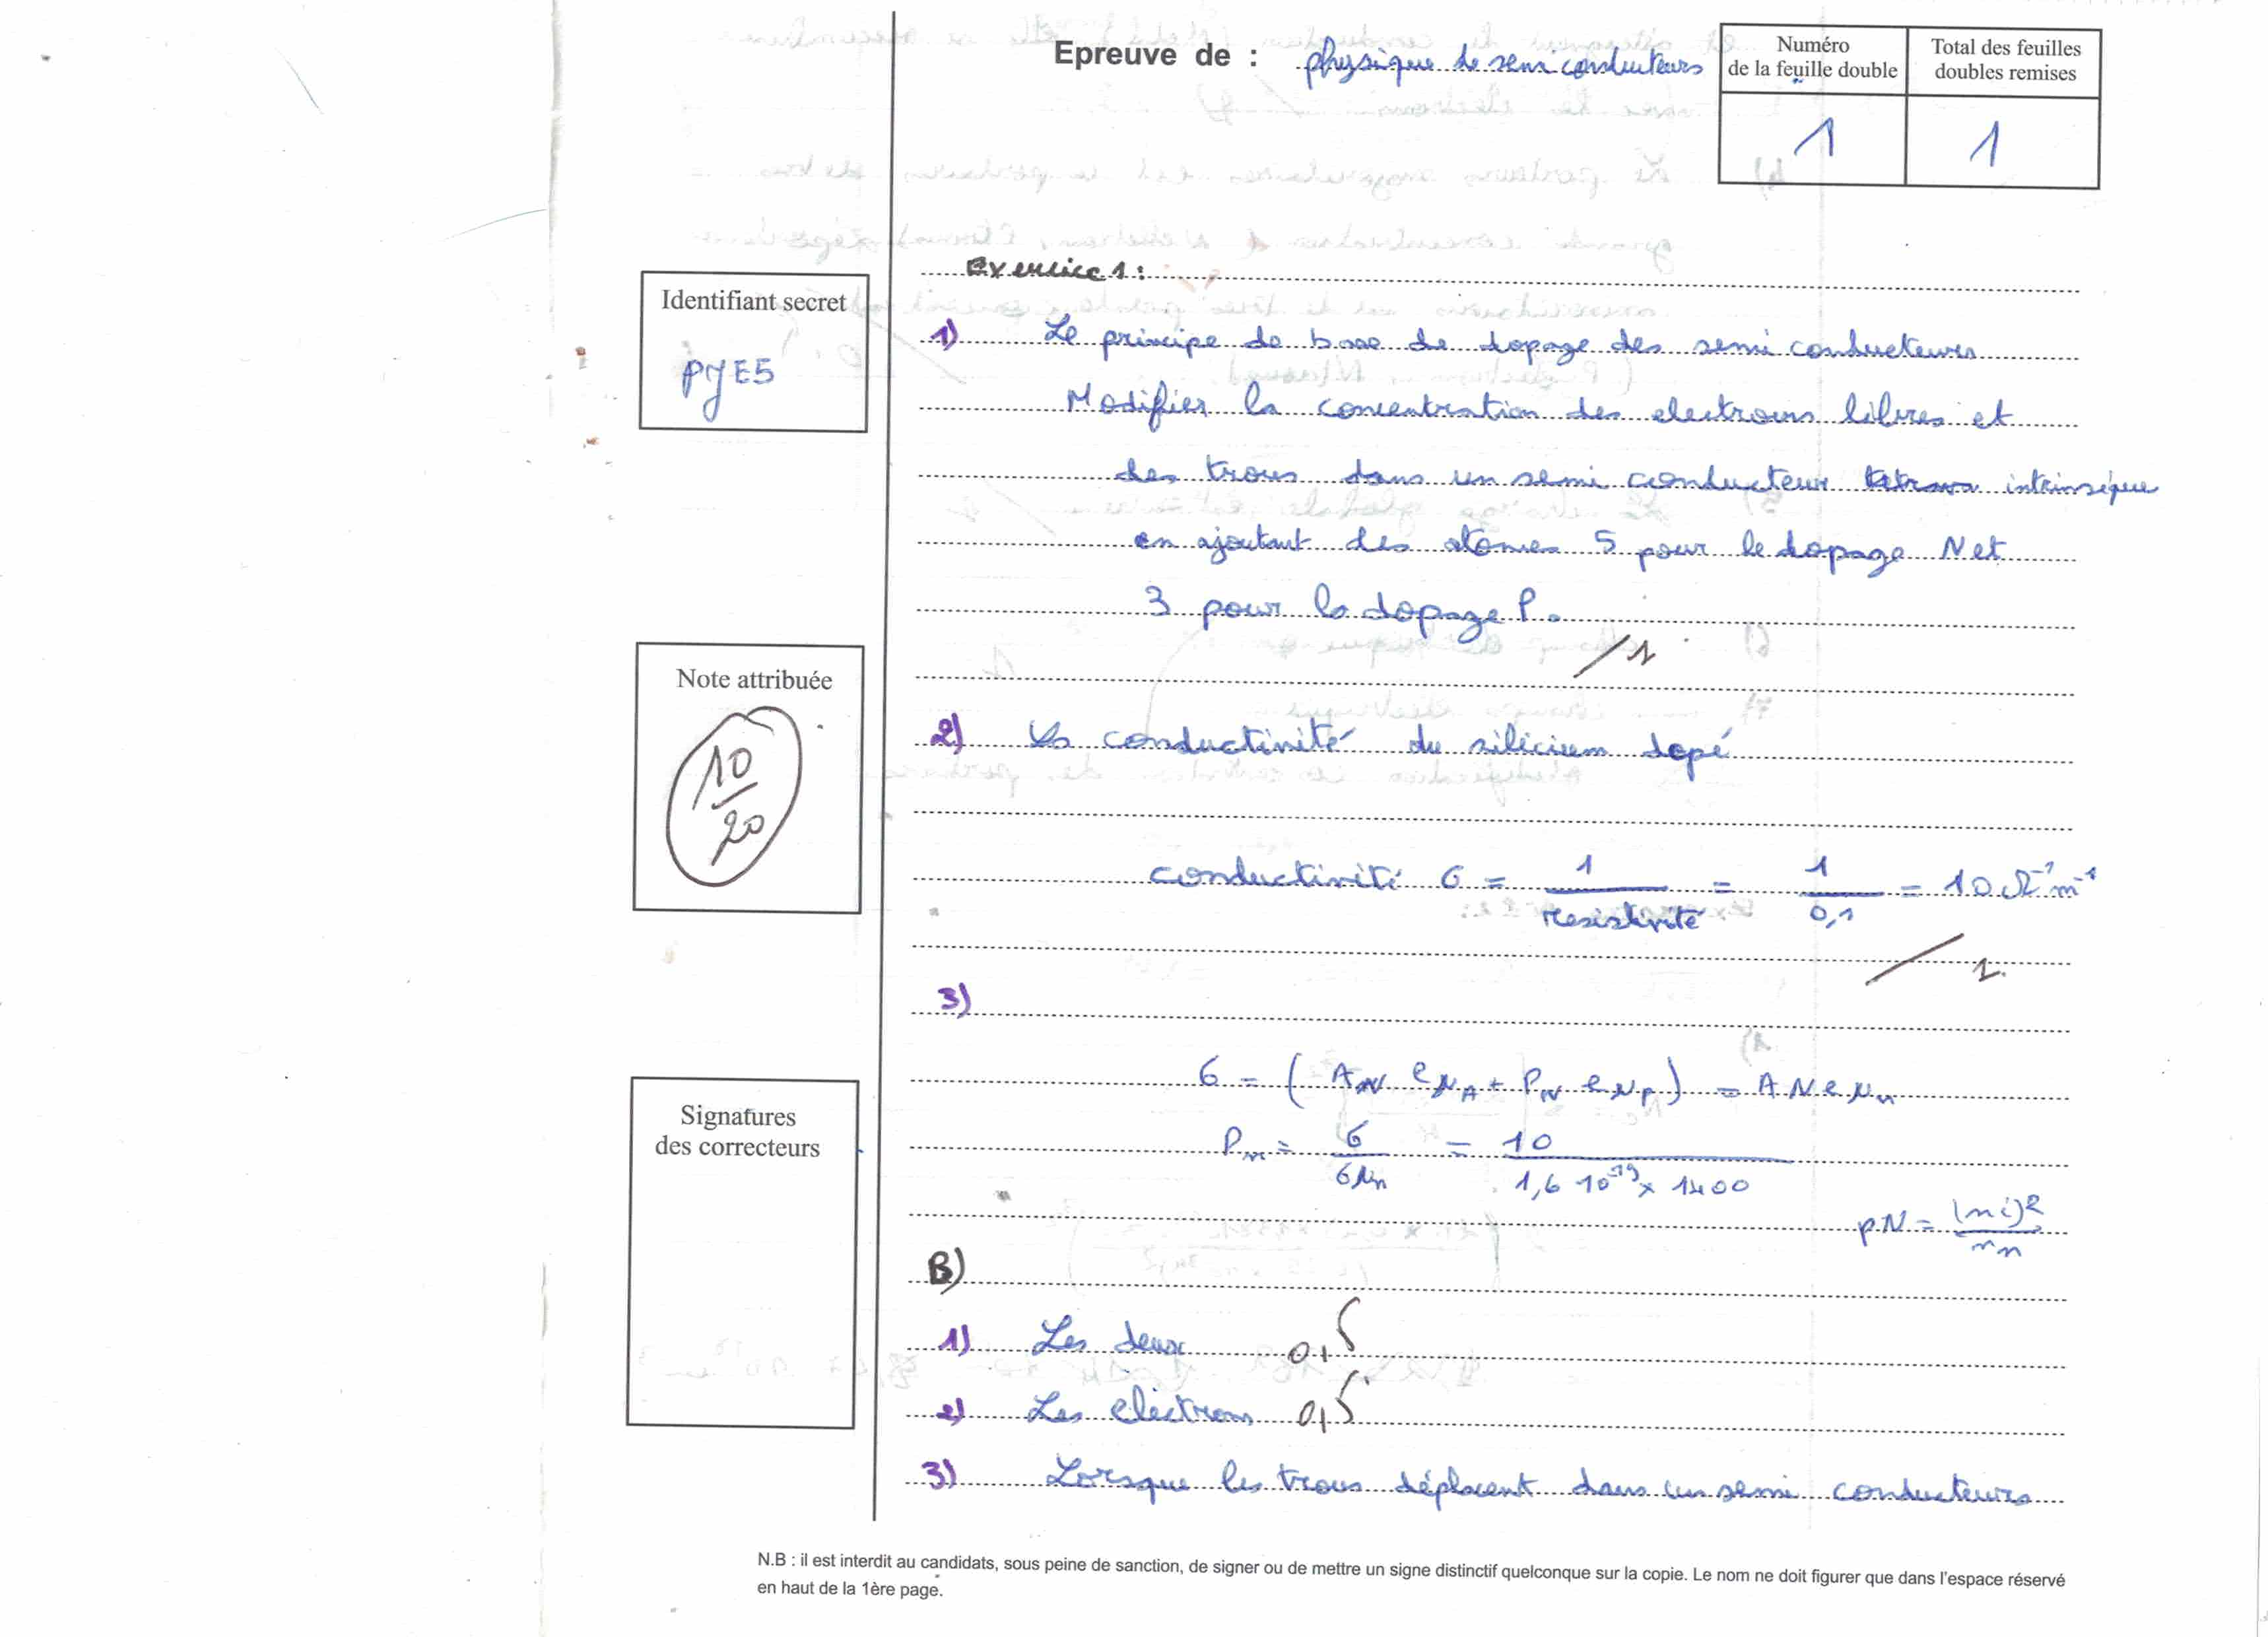 Epreuve de : physique de semi conducteurs
Numéro de la feuille double
Total des feuilles doubles remises
1
1
Identifiant secret
PJE5
Note attribuée
10/20
Signatures des correcteurs
Exercice 1 :
1) Le principe de base de dopage des semi conducteurs
Modifier la concentration des electrons libres et
des trous dans un semi conducteur intrinsèque
en ajoutant des atomes 5 pour le dopage N et
3 pour le dopage P.
/1
2) La conductivité du silicium dopé
conductivité σ = 1/resistivité = 1/0,1 = 10 Ω⁻¹m⁻¹
/1
3)
6 = ( AN e μA + PN e μp ) = A N e μn
Pn = 6/6μn = 10/1,6 10⁻¹⁹ x 1400
pN = (ni)²/nn
B)
1) Les deux 0,5
2) Les eléctrons 0,5
3) Lorsque les trous déplacent dans un semi conducteurs
N.B : il est interdit au candidats, sous peine de sanction, de signer ou de mettre un signe distinctif quelconque sur la copie. Le nom ne doit figurer que dans l'espace réservé
en haut de la 1ère page.